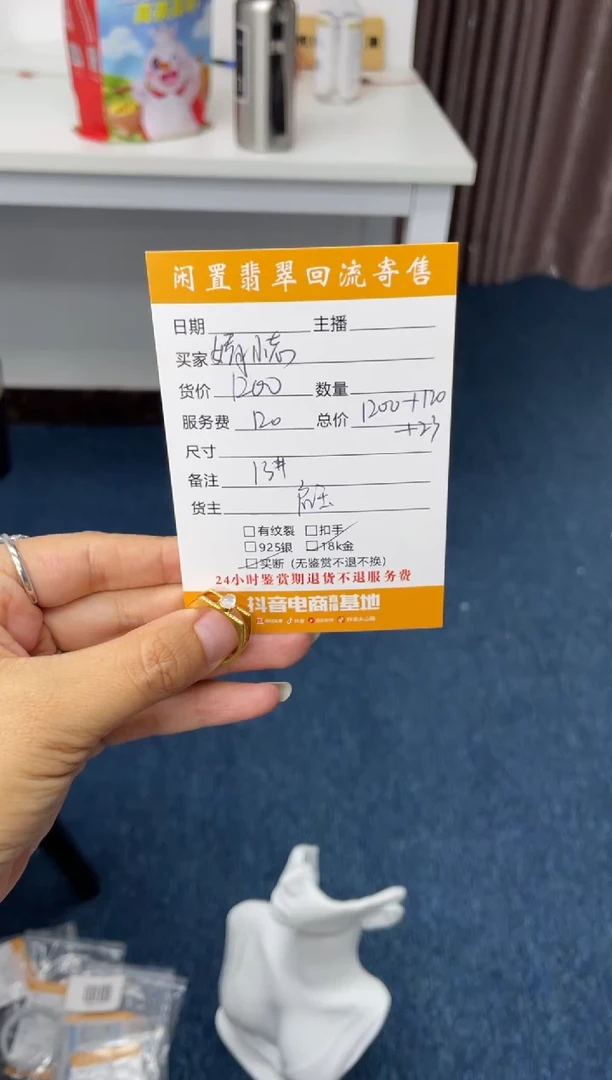 闲置翡翠回流寄售
日期 主播
买家 小志
货价 1200 数量
服务费 120 总价 1200+120
+23
尺寸
备注 13#
货主
□有纹裂 □扣手
□925银 □18k金
□买断（无鉴赏不退不换）
24小时鉴赏期退货不退服务费
抖音电商直播基地